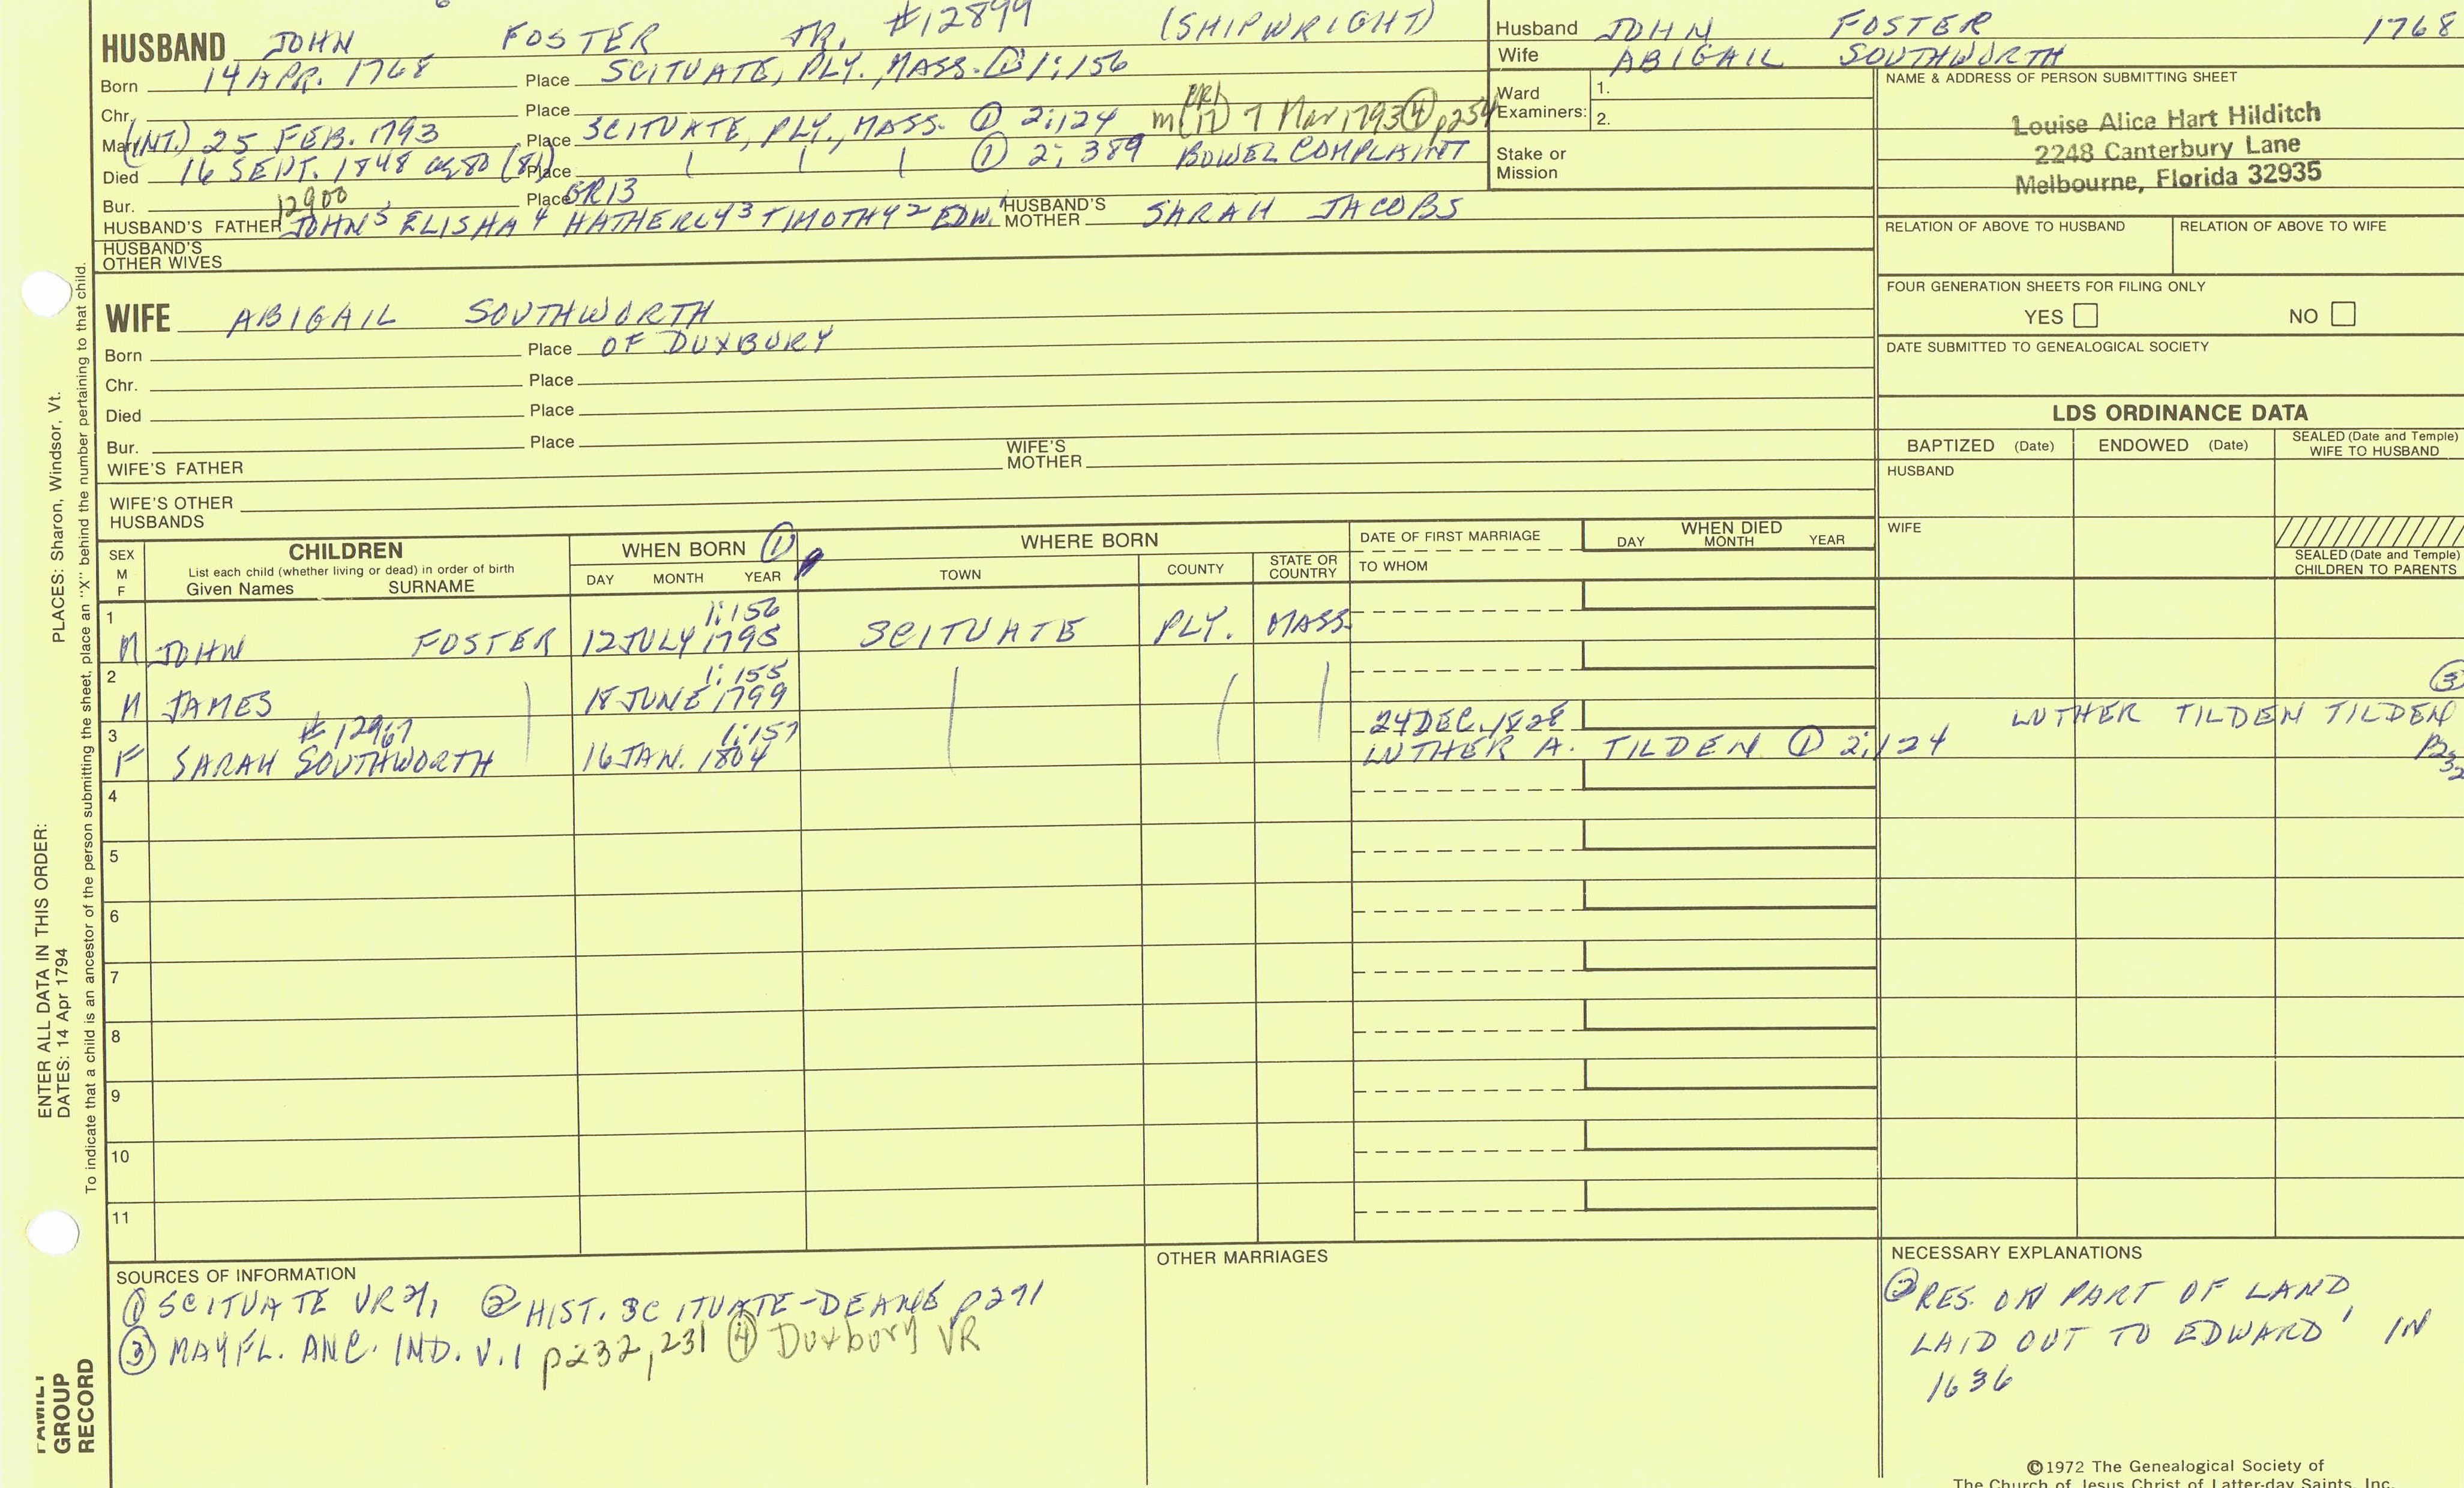 HUSBAND JOHN FOSTER JR. #12899 (SHIPWRIGHT)
Born 14 APR. 1768 Place SCITUATE, PLY., MASS. ① 1:156
Chr. Place
Mar. (INT.) 25 FEB. 1793 Place SCITUATE, PLY., MASS. ① 2:124 m 7 Mar 1793 ④ p254
Died 16 SEPT. 1848 ag 80 (81) Place ① 2:389 BOWEL COMPLAINT
Bur. Place GR13
12900
HUSBAND'S FATHER JOHN⁵ ELISHA⁴ HATHERLY³ TIMOTHY² EDW.¹ HUSBAND'S MOTHER SARAH JACOBS
HUSBAND'S OTHER WIVES
Husband JOHN FOSTER 1768
Wife ABIGAIL SOUTHWORTH
Ward Examiners: 1.
2.
Stake or Mission
NAME & ADDRESS OF PERSON SUBMITTING SHEET
Louise Alice Hart Hilditch
2248 Canterbury Lane
Melbourne, Florida 32935
RELATION OF ABOVE TO HUSBAND RELATION OF ABOVE TO WIFE
FOUR GENERATION SHEETS FOR FILING ONLY
YES NO
DATE SUBMITTED TO GENEALOGICAL SOCIETY
WIFE ABIGAIL SOUTHWORTH
Born Place OF DUXBURY
Chr. Place
Died Place
Bur. Place
WIFE'S FATHER WIFE'S MOTHER
WIFE'S OTHER HUSBANDS
LDS ORDINANCE DATA
BAPTIZED (Date) ENDOWED (Date) SEALED (Date and Temple) WIFE TO HUSBAND
HUSBAND
WIFE
SEALED (Date and Temple) CHILDREN TO PARENTS
SEX M F
CHILDREN
List each child (whether living or dead) in order of birth
Given Names SURNAME
WHEN BORN ①
DAY MONTH YEAR
WHERE BORN
TOWN COUNTY STATE OR COUNTRY
DATE OF FIRST MARRIAGE
TO WHOM
WHEN DIED
DAY MONTH YEAR
1 1:156
M JOHN FOSTER 12 JULY 1795 SCITUATE PLY. MASS.
2 1:155
M JAMES 18 JUNE 1799
3 #12967 1:157 24 DEC. 1828 LUTHER TILDEN TILDEN ③
F SARAH SOUTHWORTH 16 JAN. 1804 LUTHER A. TILDEN ① 2:124
4
5
6
7
8
9
10
11
SOURCES OF INFORMATION
① SCITUATE VR ② HIST. SCITUATE-DEANE p271
③ MAYFL. ANC. IND. V.1 p232, 231 ④ Duxbury VR
OTHER MARRIAGES
NECESSARY EXPLANATIONS
② RES. ON PART OF LAND
LAID OUT TO EDWARD¹ IN
1636
©1972 The Genealogical Society of
The Church of Jesus Christ of Latter-day Saints, Inc.
PLACES: Sharon, Windsor, Vt.
To indicate that a child is an ancestor of the person submitting the sheet, place an "X" behind the number pertaining to that child.
ENTER ALL DATA IN THIS ORDER:
DATES: 14 Apr 1794
FAMILY
GROUP
RECORD